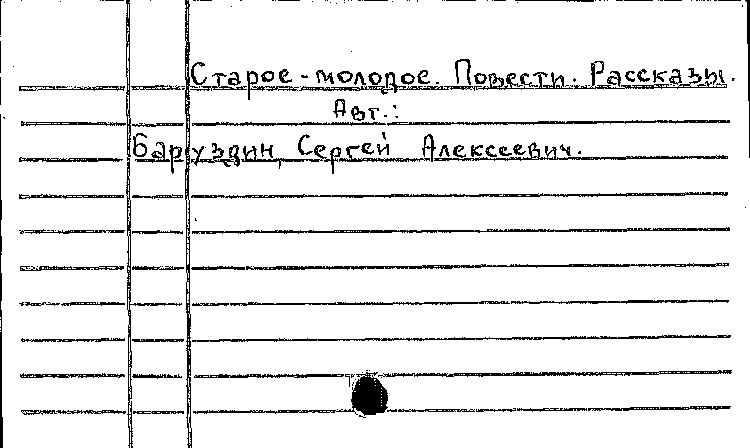 Старое-молодое. Повести. Рассказы.
Авт.:
Баруздин, Сергей Алексеевич.